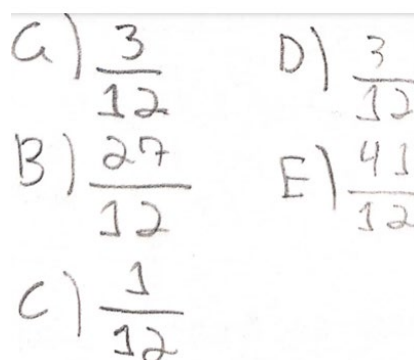 a) 3/12
B) 27/12
C) 1/12
D) 3/12
E) 41/12